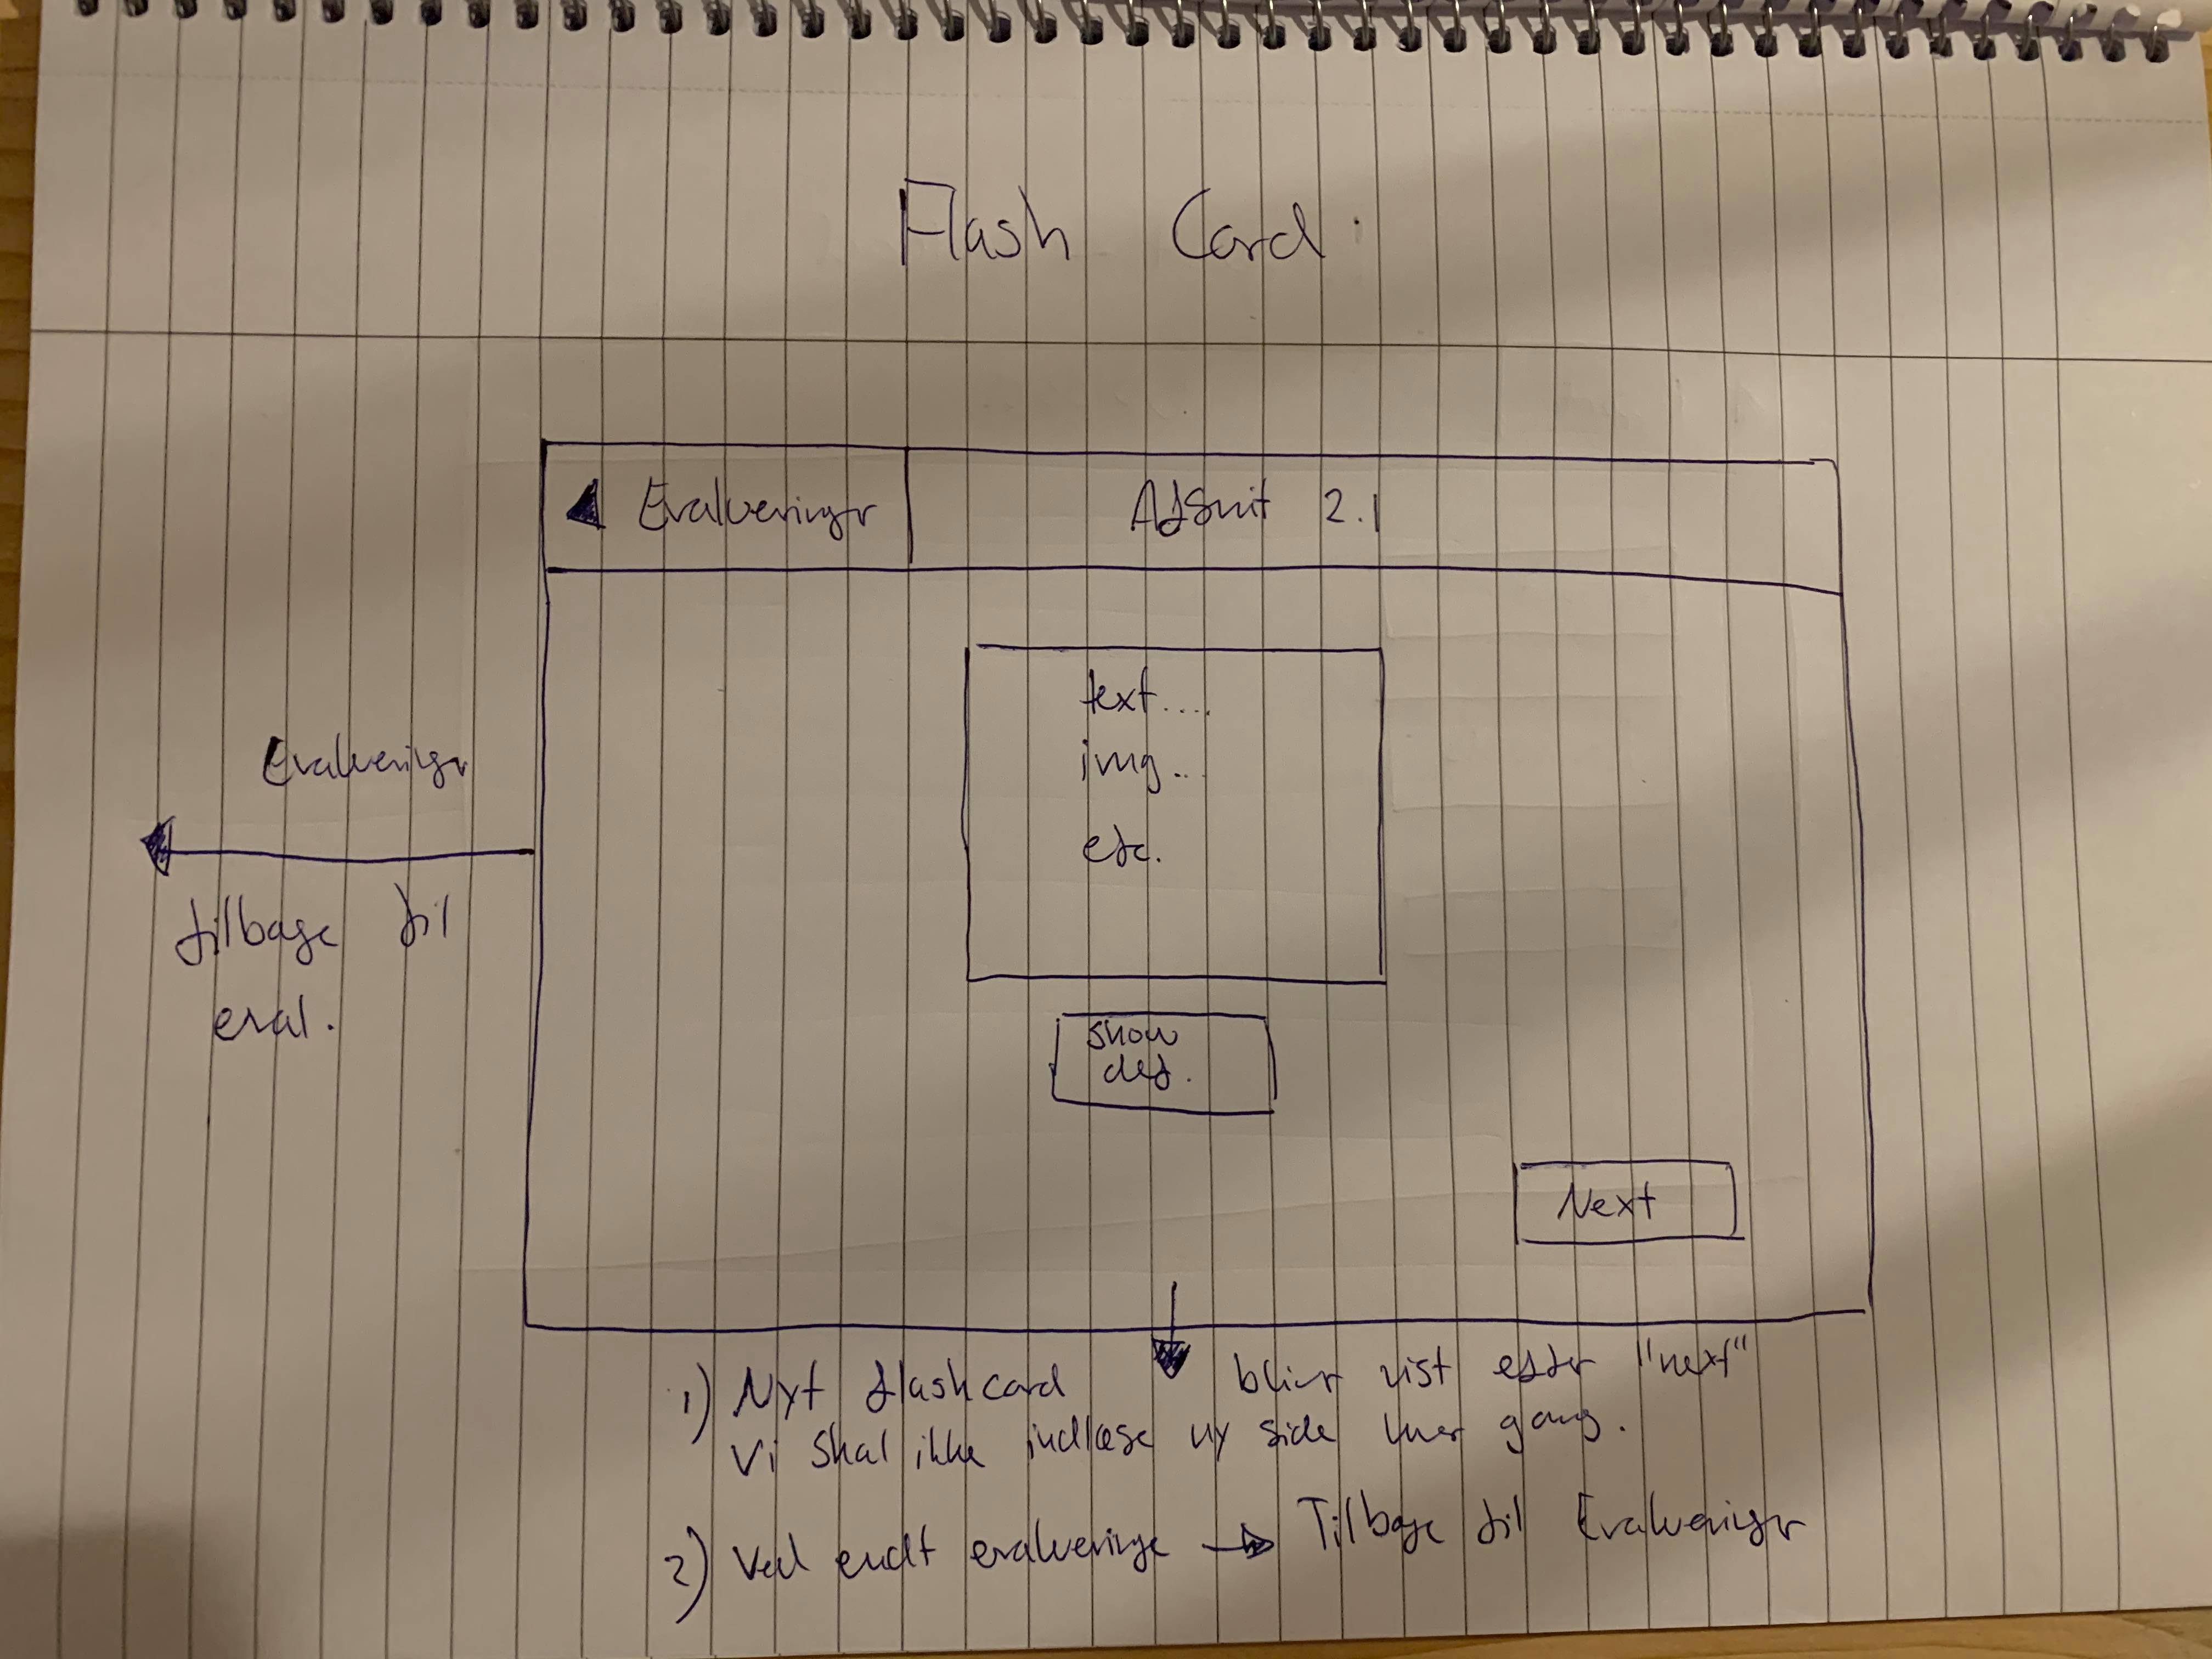 Flash Card
Evalueringer
Afsnit 2.1
text....
img...
etc.
show
def.
Next
Evalueringer
tilbage til
eval.
1) Nyt flashcard bliver vist efter "next"
Vi skal ikke indlæse ny side hver gang.
2) Ved endt evaluering → Tilbage til Evalueringer